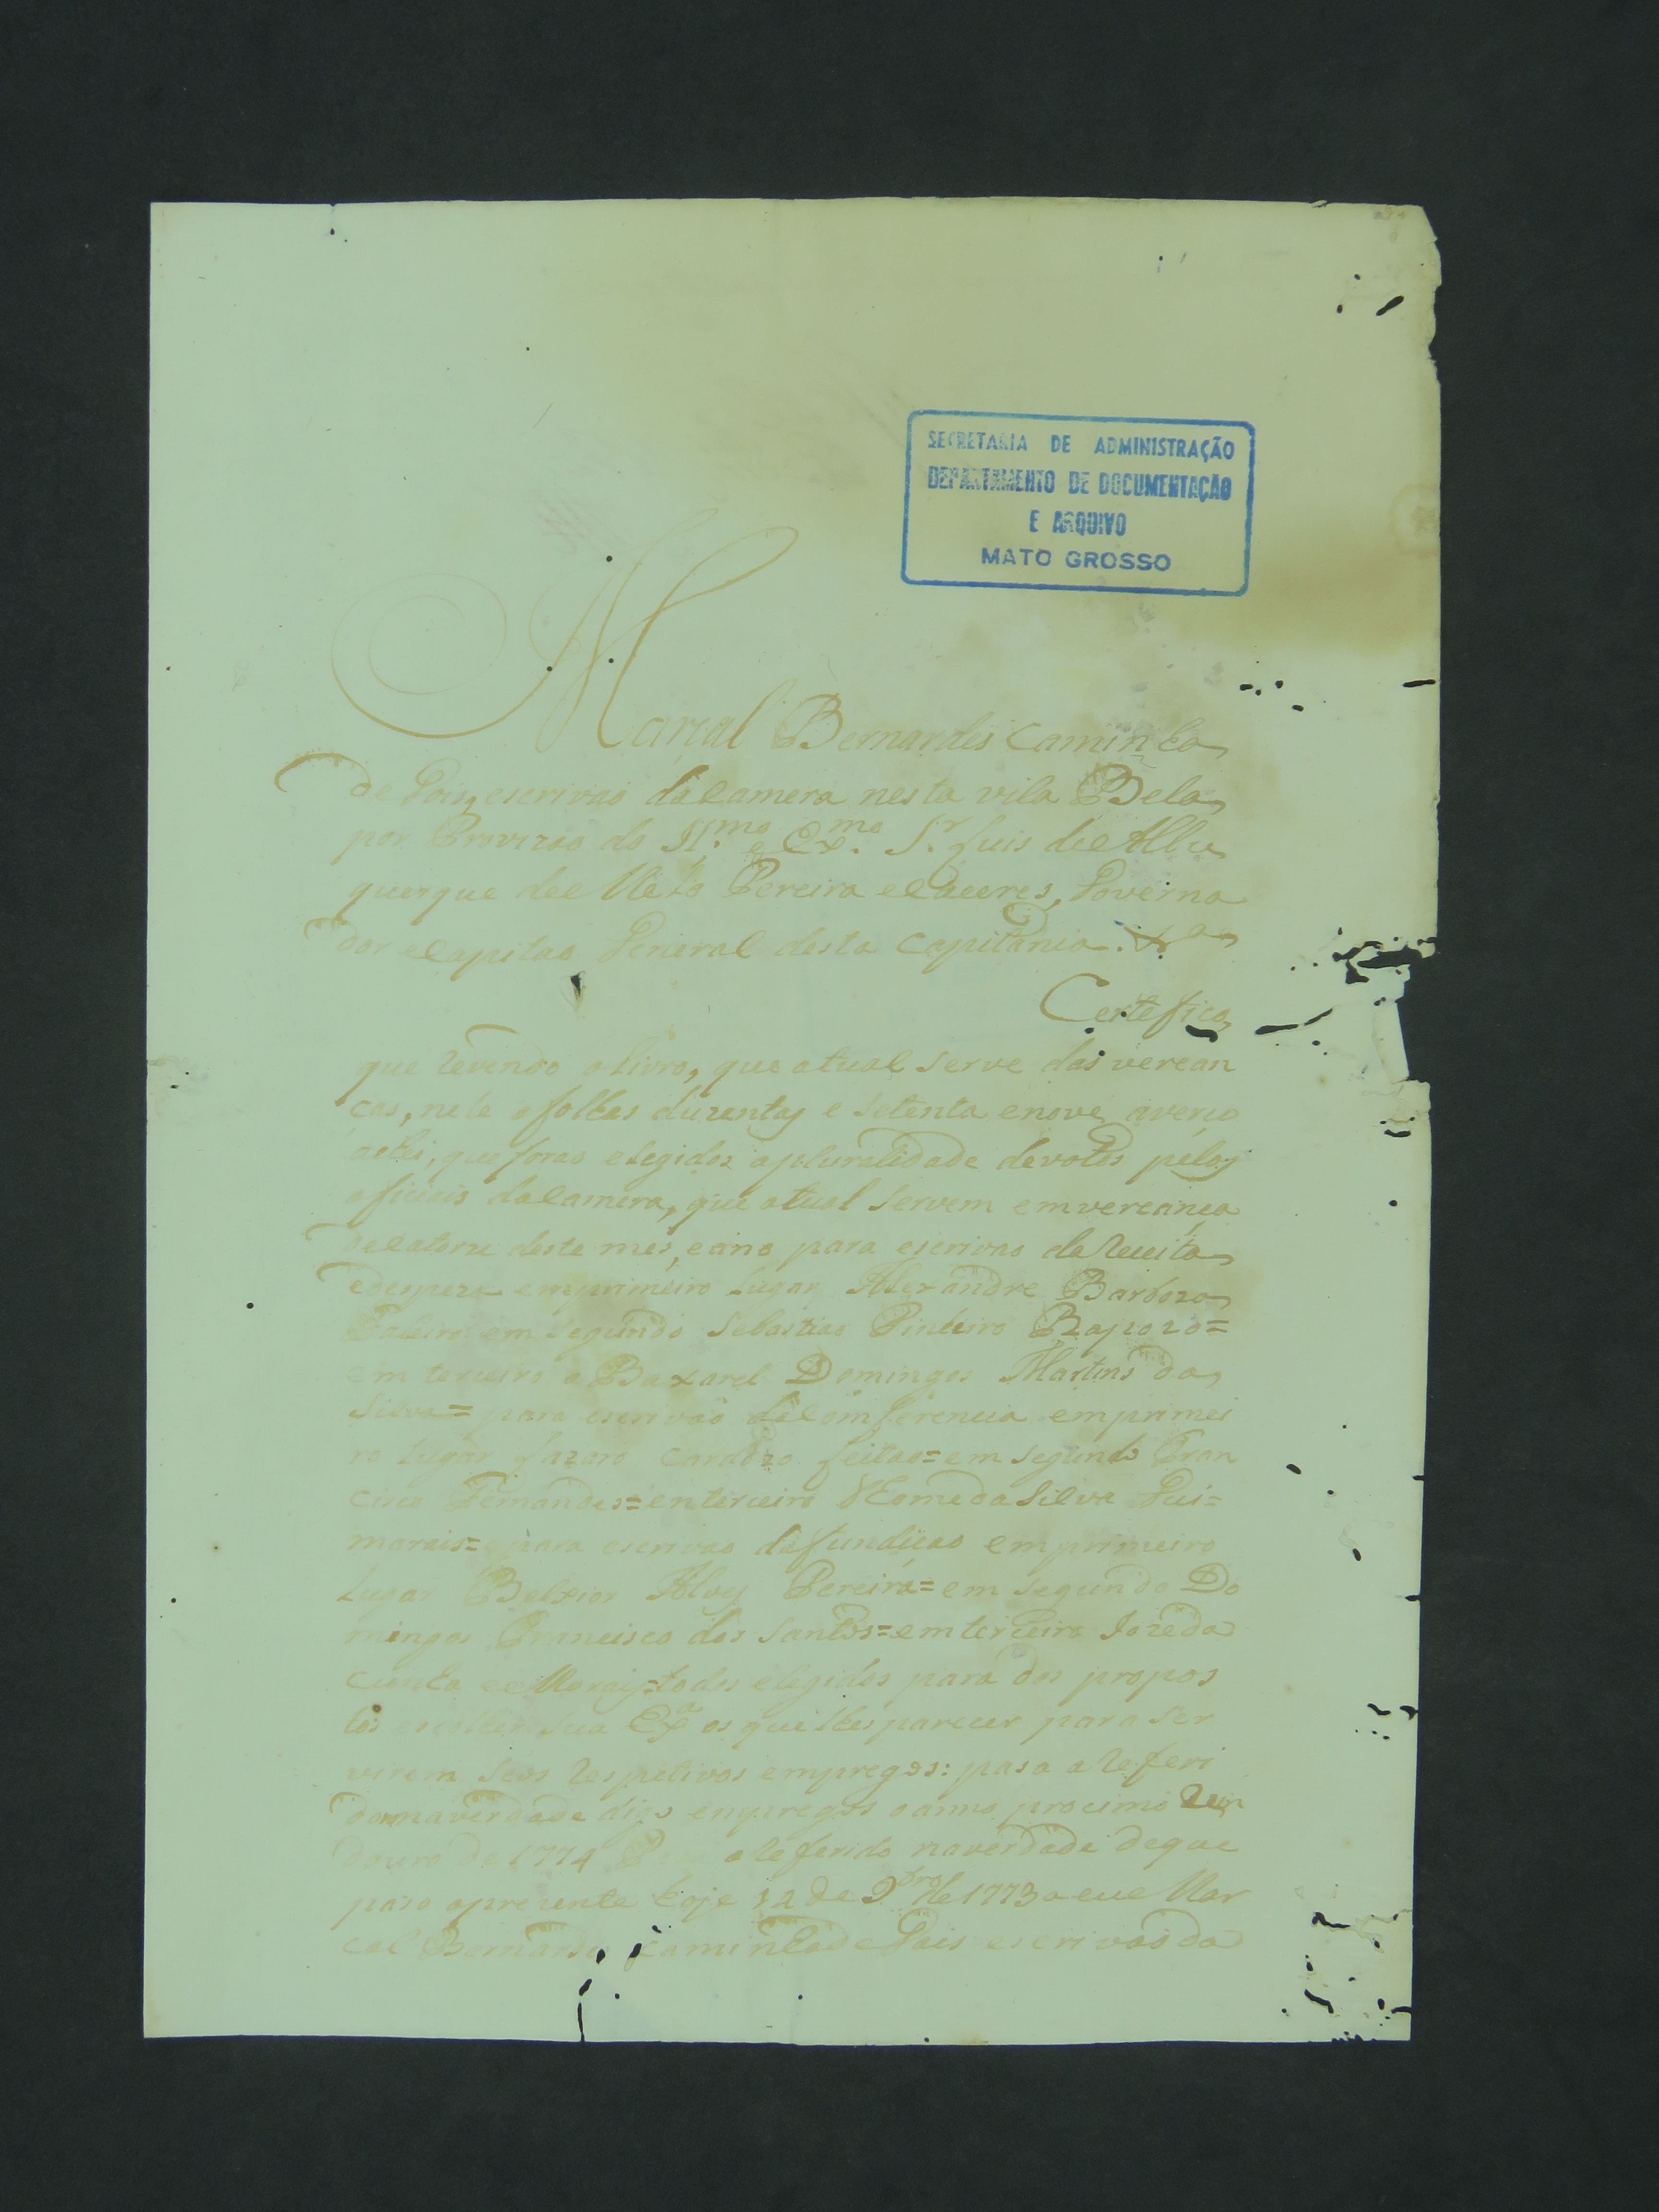 SECRETARIA DE ADMINISTRAÇÃO
DEPARTAMENTO DE DOCUMENTAÇÃO
E ARQUIVO
MATO GROSSO
Marcal Bernardes Caminha
de escrivaõ dacamera nesta vila Bela
por Provizaõ do Il.mo e Ex.mo S.r Luis de Albu
querque de Melo Pereira e Caceres, Governa
dor e Capitaõ General desta Capitania. &a
Certefico
que Revendo o livro, que atual Serve das verean
cas, nele a folhas duzentas e Setenta e nove averço
achei, que foraõ elegidos apluralidade devotos pelos
oficiais dacamera, que atual Servem emvereança
decatorze deste mes, e ano para escrivaõ da Receita
edespeza emprimeiro Lugar Alexandre Barbozo
em Segundo Sebastiaõ Pinheiro Rapozo=
em terceiro o Baxarel Domingos Martins da
Silva= para escrivaõ da Comferencia emprimei
ro Lugar Lazaro Cardozo Leitaõ= em Segundo Fran
cisco Fernandes= enterceiro Tome da Silva Gui=
marais= para escrivaõ dafundiçaõ em primeiro
Lugar Belxior Alves Pereira= em Segundo Do
mingos Francisco dos Santos= em terceiro Joze da
Cunha e Morais= todos elegidos para dos propos
tos escolher Sua Ex.a os que lhes parecer para Ser
virem Seos Respetivos empregos: pasa a Referi
do naverdade digo empregos o anno procimo Vin
douro de 1774 oReferido naverdade deque
paso aprezente hoje 12 de 9bro de 1773 a e eu Mar
cal Bernardes Caminha de escrivaõ da